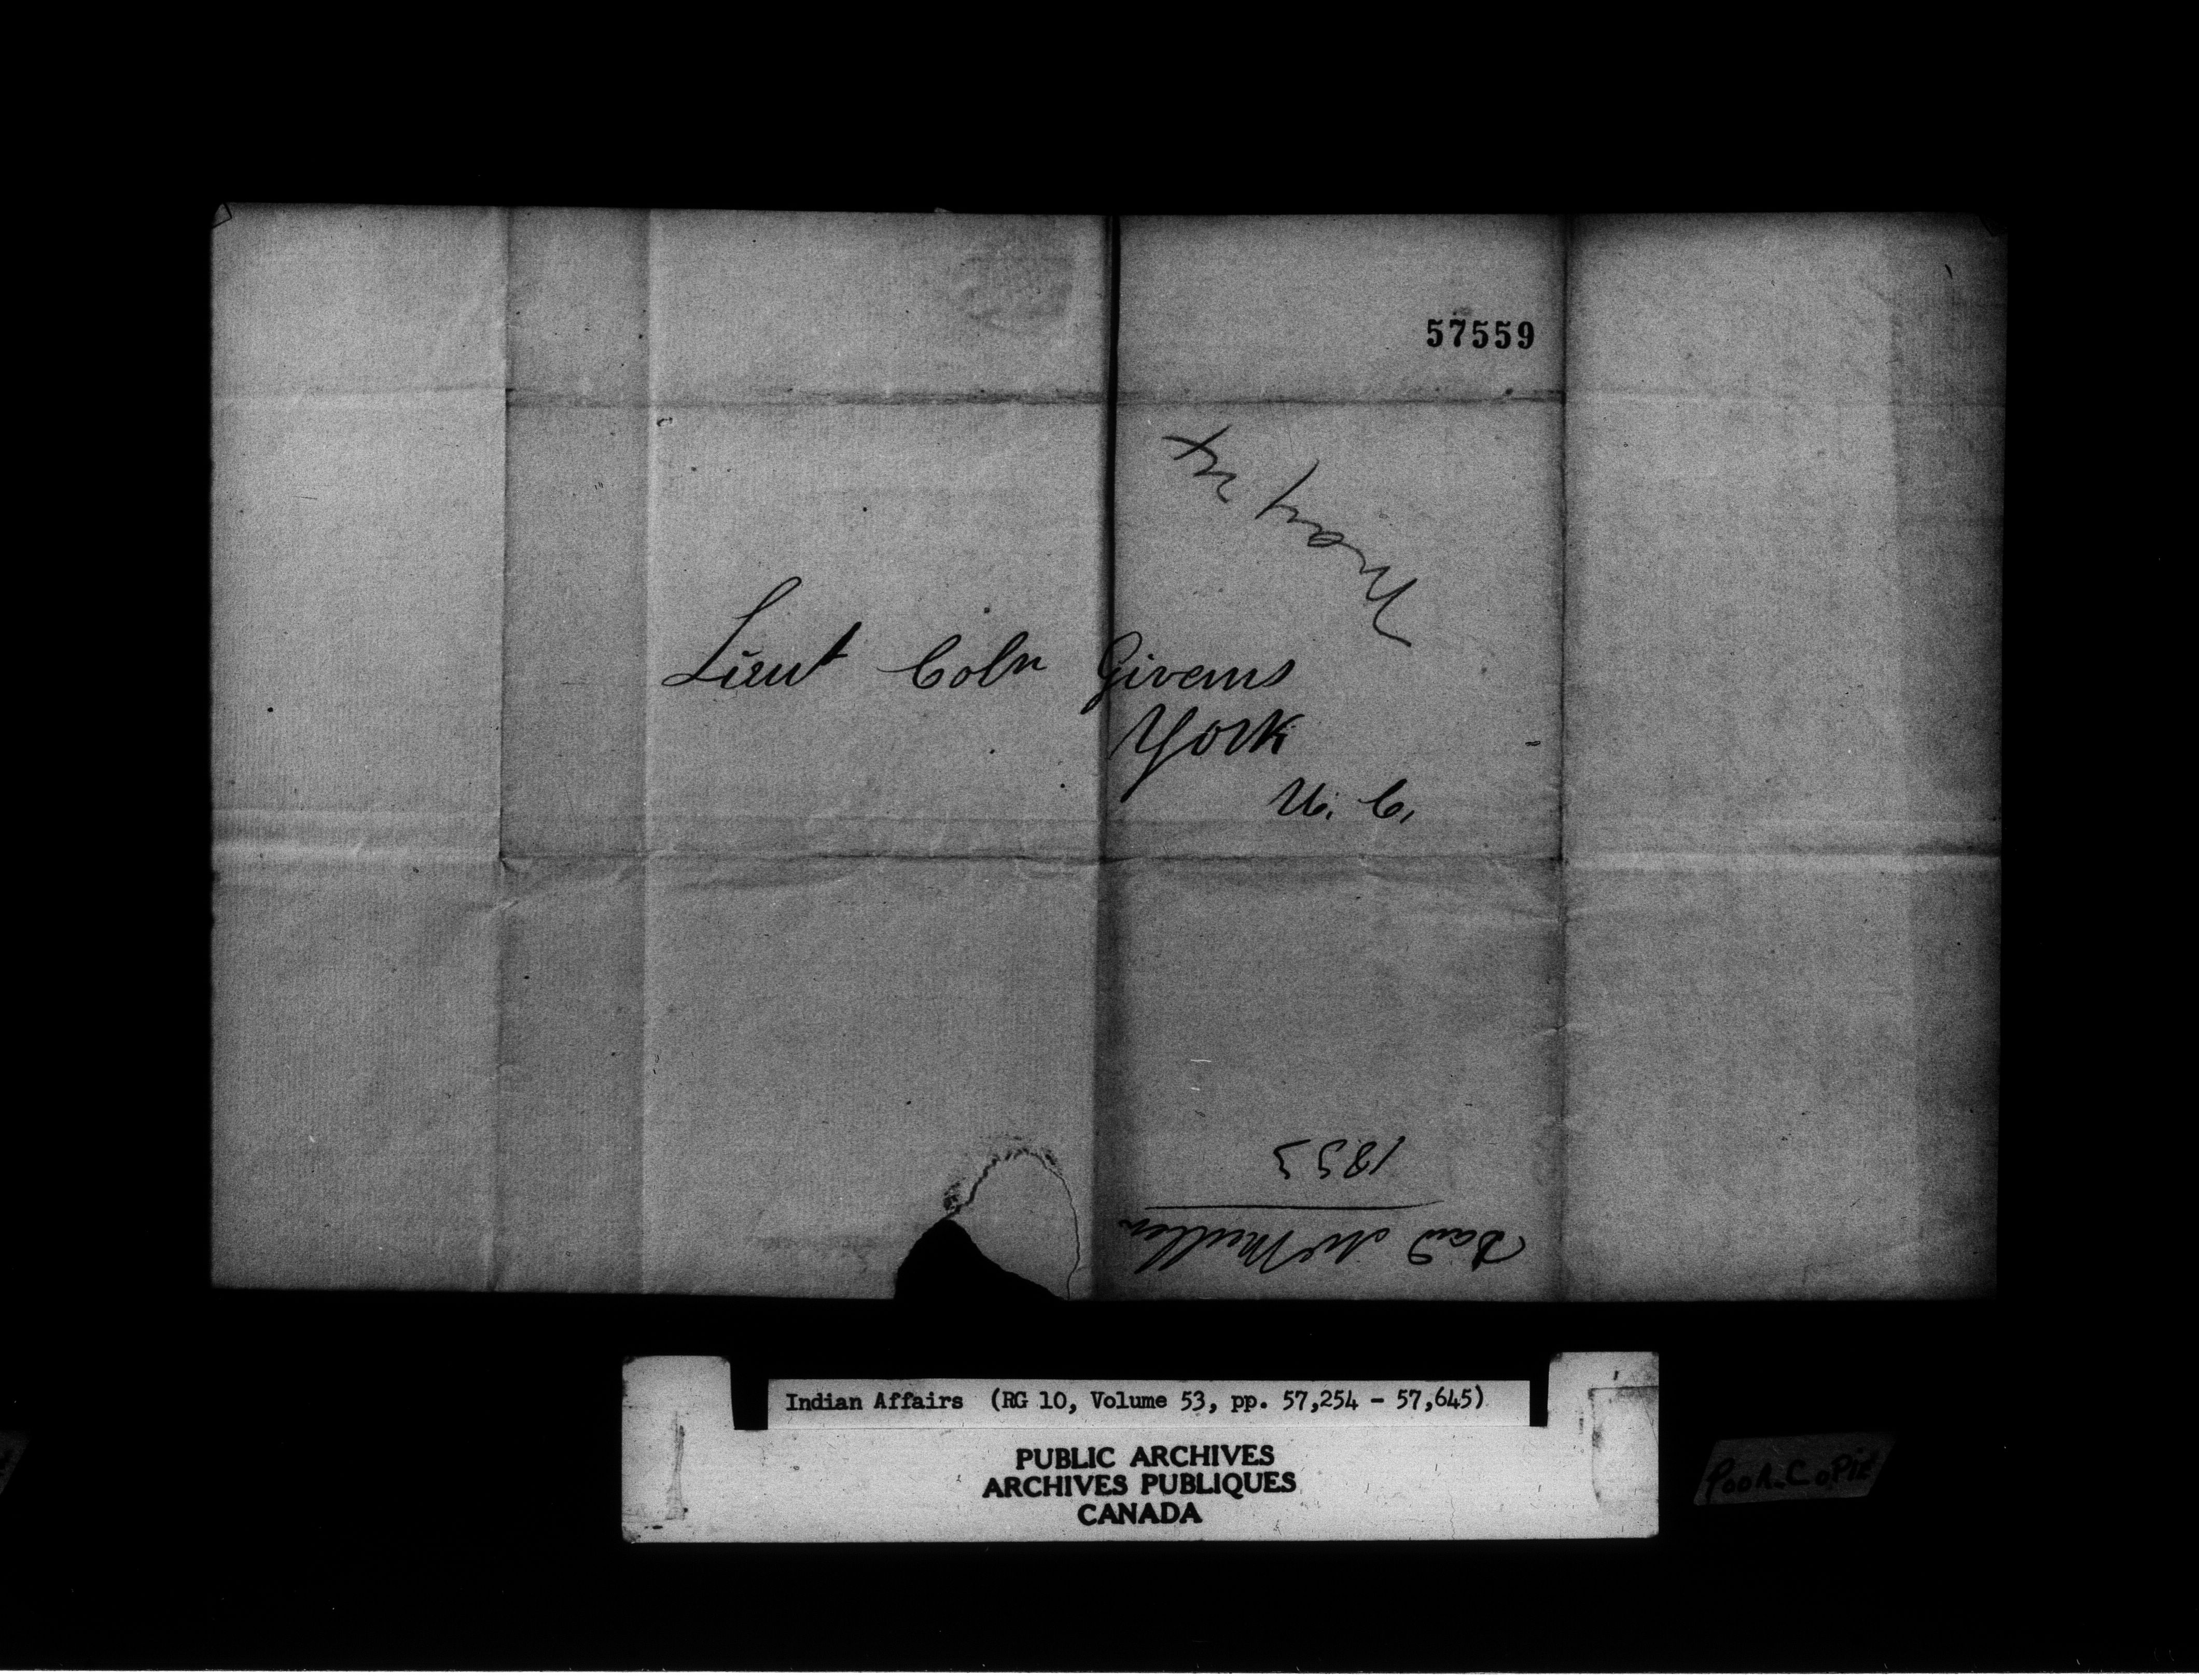 57559
May 24
Lieut Coln Givens
York
U. C.
1833
David McMullen
Indian Affairs (RG 10, Volume 53, pp. 57,254 - 57,645)
PUBLIC ARCHIVES
ARCHIVES PUBLIQUES
CANADA
Poor Copie